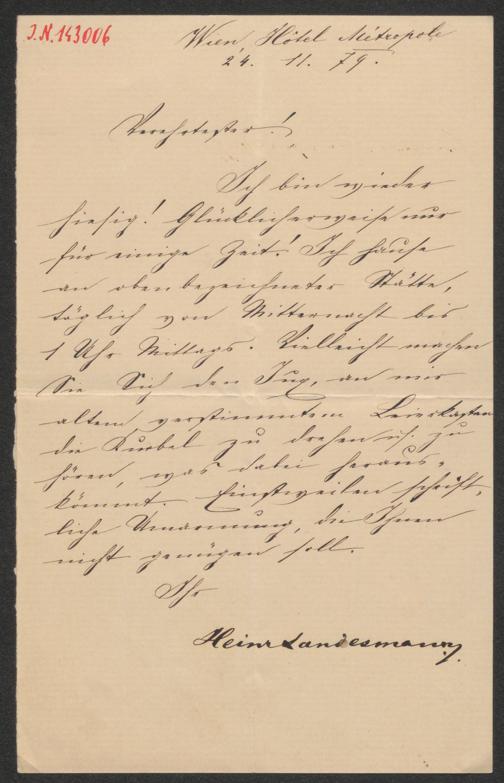 J.N. 143006
Wien, Hôtel Métropole
24. 11. 79.
Verehrtester!
Ich bin wieder
hiesig! Glücklicherweise nur
für einige Zeit! Ich hause
an obenbezeichneter Stätte,
täglich von Mitternacht bis
1 Uhr Mittags. Vielleicht machen
Sie Sich den Jux, an mir
altem, verstimmtem Leierkasten
die Kurbel zu drehen u. zu
hören, was dabei heraus-
kömmt. Einstweilen schrift-
liche Umarmung, die Ihnen
nicht genügen soll.
Ihr
Heinr Landesmann.